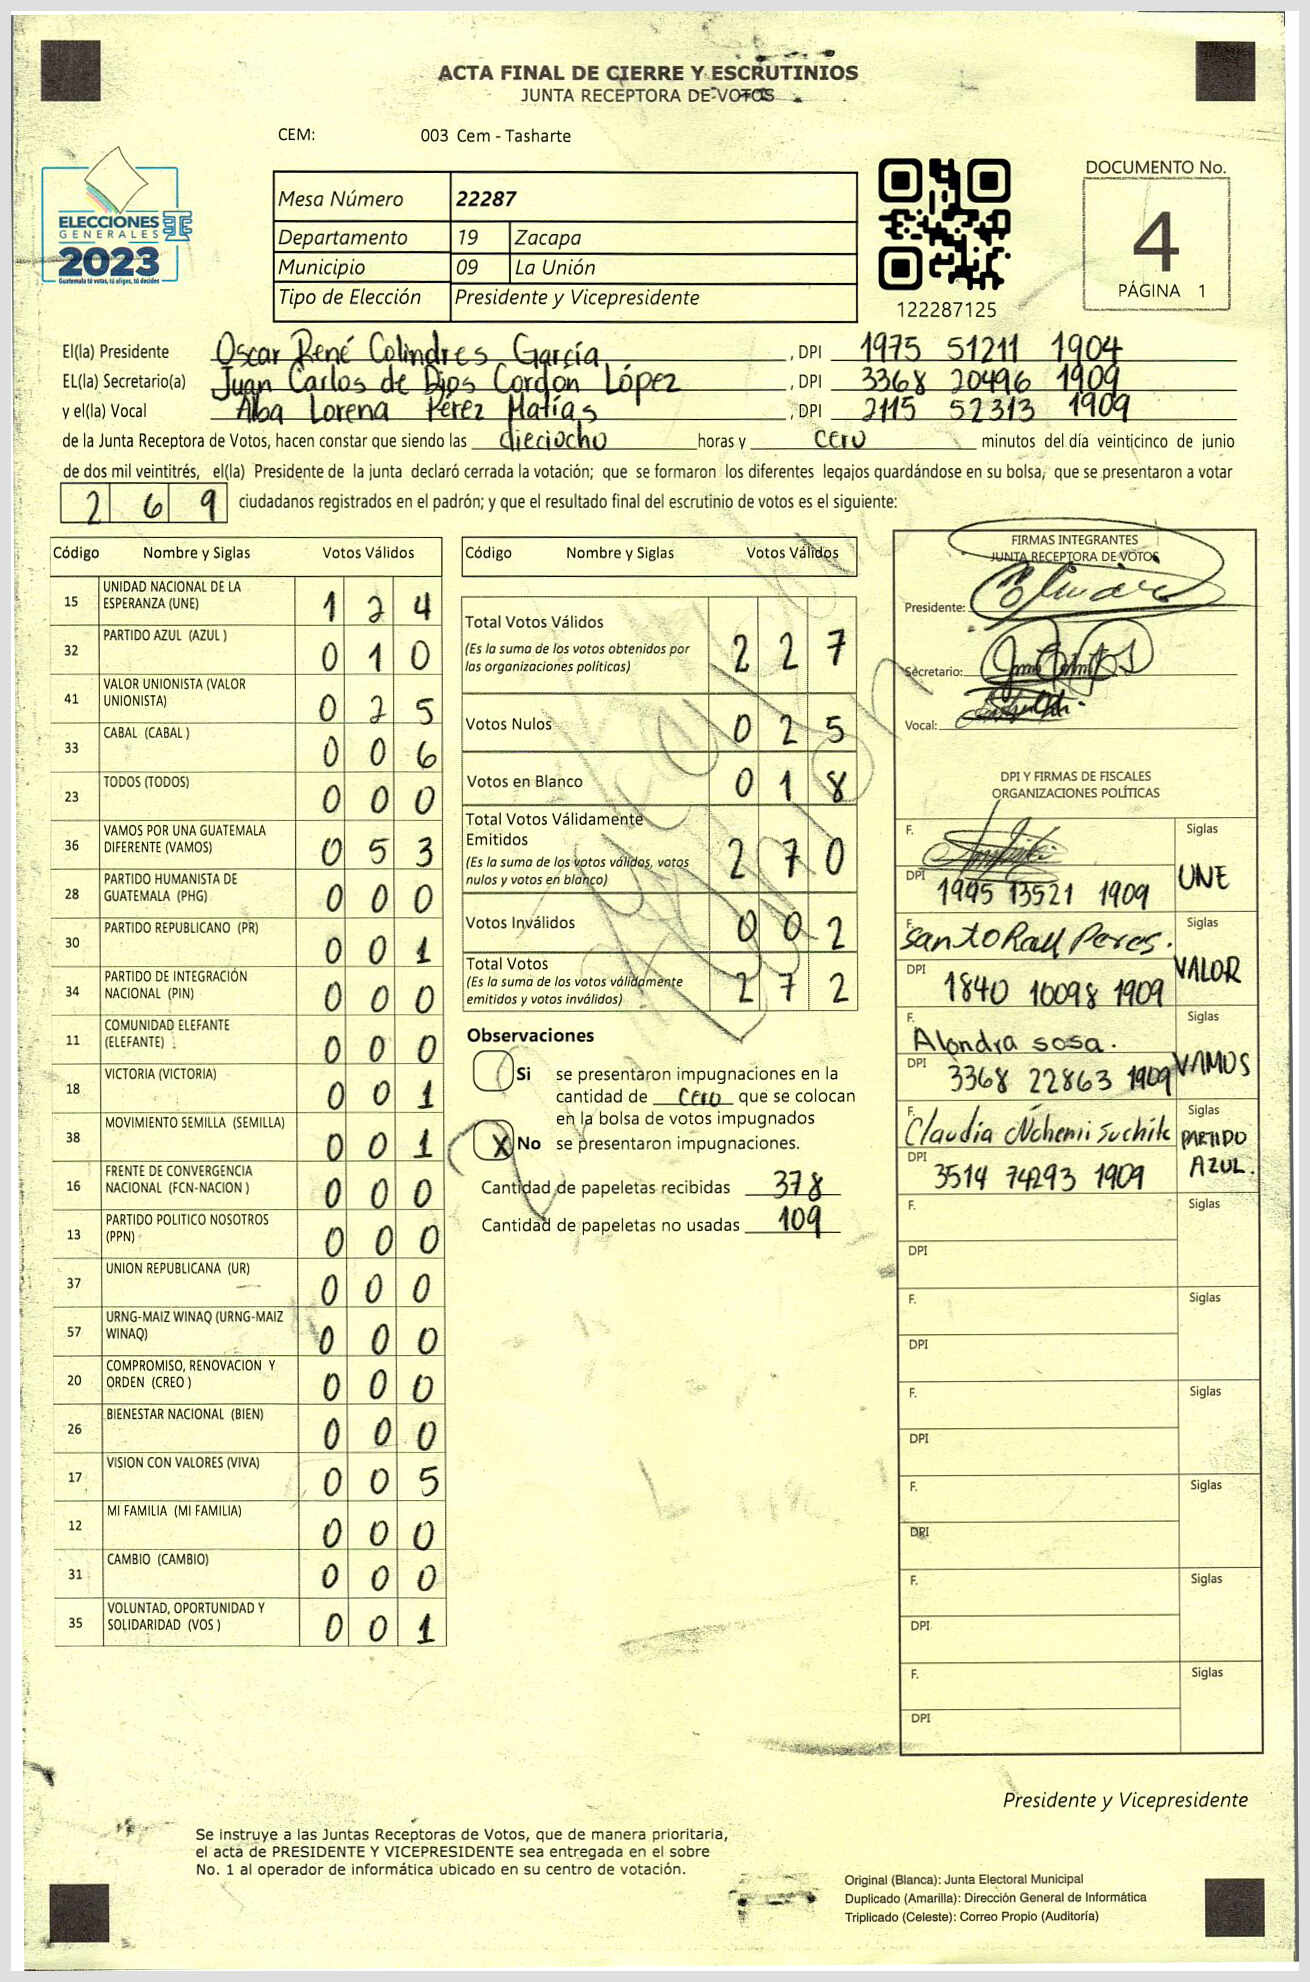 ACTA FINAL DE CIERRE Y ESCRUTINIOS
JUNTA RECEPTORA DE VOTOS
CEM: 003 Cem - Tasharte
ELECCIONES
GENERALES
2023
Guatemala tú votas, tú eliges, tú decides
Mesa Número 22287
Departamento 19 Zacapa
Municipio 09 La Unión
Tipo de Elección Presidente y Vicepresidente
122287125
DOCUMENTO No.
4
PÁGINA 1
El(la) Presidente Oscar René Colindres García , DPI 1975 51211 1904
EL(la) Secretario(a) Juan Carlos de Dios Cordón López , DPI 3368 20496 1909
y el(la) Vocal Alba Lorena Pérez Matías , DPI 2115 52313 1909
de la Junta Receptora de Votos, hacen constar que siendo las dieciocho horas y cero minutos del día veinticinco de junio
de dos mil veintitrés, el(la) Presidente de la junta declaró cerrada la votación; que se formaron los diferentes legajos quardándose en su bolsa, que se presentaron a votar
2 6 9 ciudadanos registrados en el padrón; y que el resultado final del escrutinio de votos es el siguiente:
Código Nombre y Siglas Votos Válidos
15 UNIDAD NACIONAL DE LA
ESPERANZA (UNE) 1 2 4
32 PARTIDO AZUL (AZUL ) 0 1 0
41 VALOR UNIONISTA (VALOR
UNIONISTA) 0 2 5
33 CABAL (CABAL ) 0 0 6
23 TODOS (TODOS) 0 0 0
36 VAMOS POR UNA GUATEMALA
DIFERENTE (VAMOS) 0 5 3
28 PARTIDO HUMANISTA DE
GUATEMALA (PHG) 0 0 0
30 PARTIDO REPUBLICANO (PR) 0 0 1
34 PARTIDO DE INTEGRACIÓN
NACIONAL (PIN) 0 0 0
11 COMUNIDAD ELEFANTE
(ELEFANTE) 0 0 0
18 VICTORIA (VICTORIA) 0 0 1
38 MOVIMIENTO SEMILLA (SEMILLA) 0 0 1
16 FRENTE DE CONVERGENCIA
NACIONAL (FCN-NACION ) 0 0 0
13 PARTIDO POLITICO NOSOTROS
(PPN) 0 0 0
37 UNION REPUBLICANA (UR) 0 0 0
57 URNG-MAIZ WINAQ (URNG-MAIZ
WINAQ) 0 0 0
20 COMPROMISO, RENOVACION Y
ORDEN (CREO ) 0 0 0
26 BIENESTAR NACIONAL (BIEN) 0 0 0
17 VISION CON VALORES (VIVA) 0 0 5
12 MI FAMILIA (MI FAMILIA) 0 0 0
31 CAMBIO (CAMBIO) 0 0 0
35 VOLUNTAD, OPORTUNIDAD Y
SOLIDARIDAD (VOS ) 0 0 1
Código Nombre y Siglas Votos Válidos
Total Votos Válidos
(Es la suma de los votos obtenidos por
las organizaciones políticas) 2 2 7
Votos Nulos 0 2 5
Votos en Blanco 0 1 8
Total Votos Válidamente
Emitidos
(Es la suma de los votos válidos, votos
nulos y votos en blanco) 2 7 0
Votos Inválidos 0 0 2
Total Votos
(Es la suma de los votos válidamente
emitidos y votos inválidos) 2 7 2
Observaciones
Si se presentaron impugnaciones en la
cantidad de cero que se colocan
en la bolsa de votos impugnados
X No se presentaron impugnaciones.
Cantidad de papeletas recibidas 378
Cantidad de papeletas no usadas 109
FIRMAS INTEGRANTES
JUNTA RECEPTORA DE VOTOS
Presidente:
Secretario:
Vocal:
DPI Y FIRMAS DE FISCALES
ORGANIZACIONES POLÍTICAS
F. Siglas
UNE
DPI 1995 13521 1909
F. Santo Raul Peres. Siglas
VALOR
DPI 1840 10098 1909
F. Alondra sosa. Siglas
VAMOS
DPI 3368 22863 1909
F. Claudia Nohemi Suchite Siglas
PARTIDO
AZUL.
DPI 3514 74293 1909
F. Siglas
DPI
F. Siglas
DPI
F. Siglas
DPI
F. Siglas
DPI
F. Siglas
DPI
F. Siglas
DPI
Presidente y Vicepresidente
Se instruye a las Juntas Receptoras de Votos, que de manera prioritaria,
el acta de PRESIDENTE Y VICEPRESIDENTE sea entregada en el sobre
No. 1 al operador de informática ubicado en su centro de votación.
Original (Blanca): Junta Electoral Municipal
Duplicado (Amarilla): Dirección General de Informática
Triplicado (Celeste): Correo Propio (Auditoría)